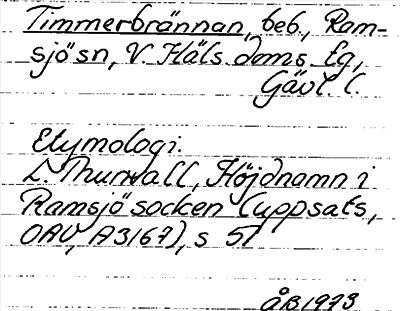 Timmerbrännan, beb., Ram-
sjö sn, V. Häls. doms. tg,
Gävl. l.
Etymologi.
L. Thunvall, Höjdnamn i
Ramsjö socken (uppsats,
OAU, A3167), s 51
ÅB 1973